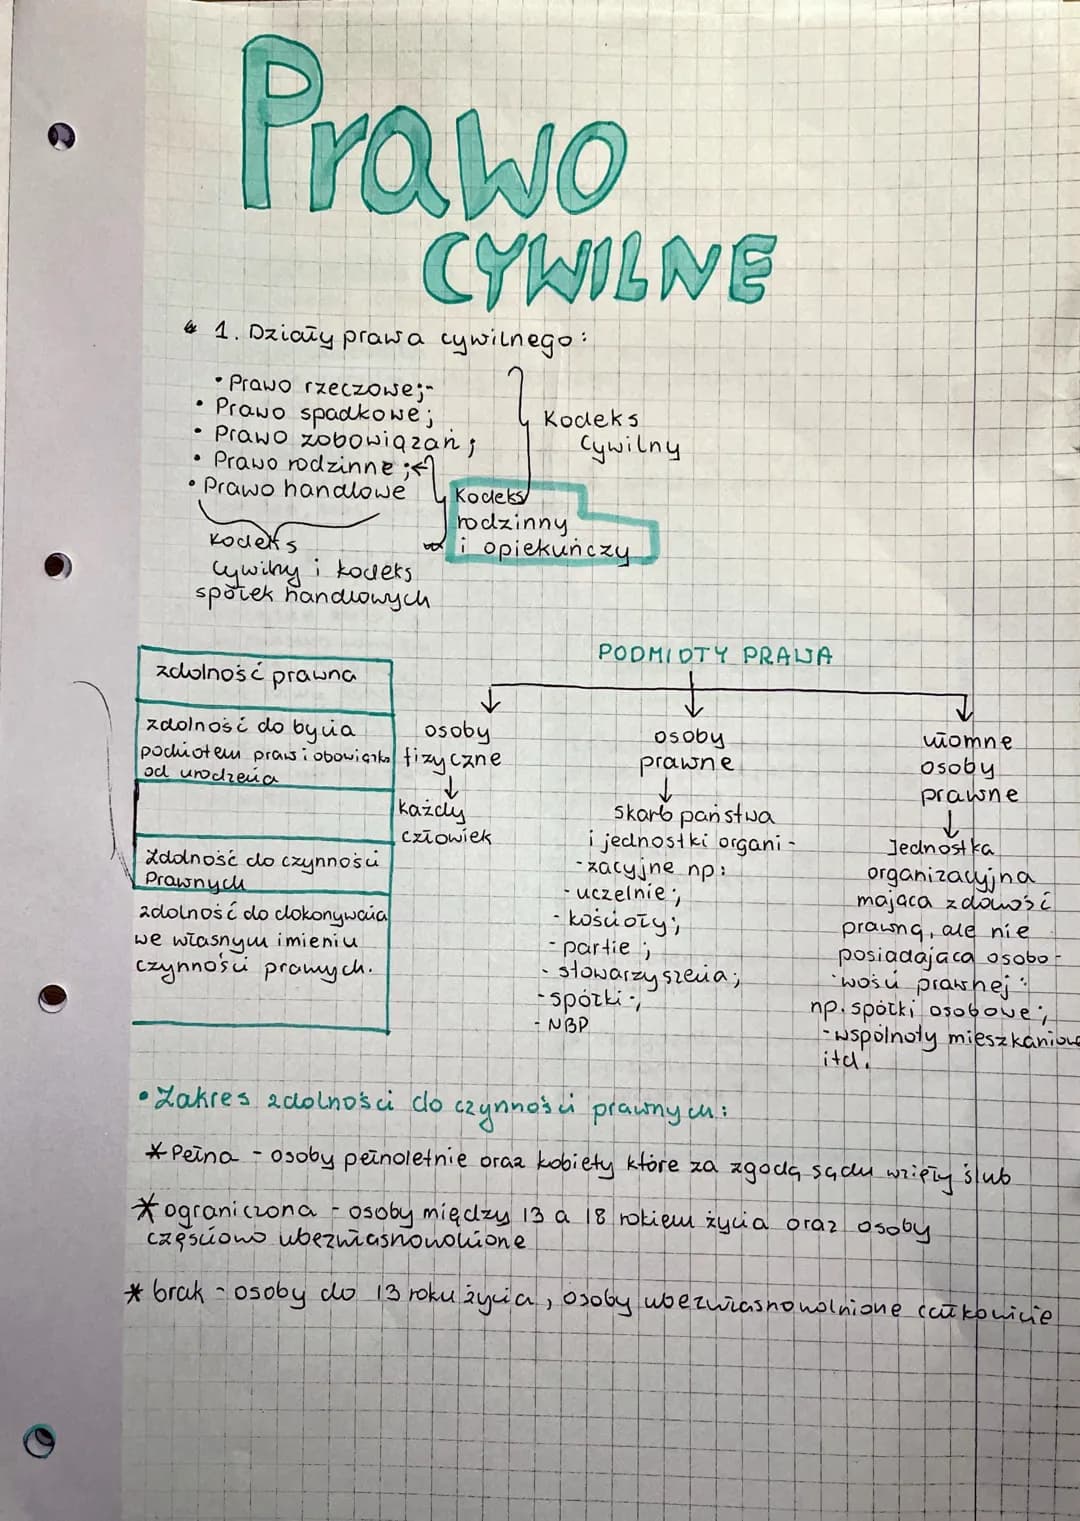 Prawo
CYWILNE
1. Działy prawa cywilnego:
• Prawo rzeczowe;
• Prawo spadkowe;
• Prawo zobowiązań;
• Prawo rodzinne;
• Prawo handlowe
Kodeks
Cywilny
Kodeks
rodzinny
i opiekuńczy
Kodeks
cywilny i kodeks
spółek handlowych
zdolność prawna
zdolność do bycia
podmiotem praw i obowiązków
od urodzenia
zdolność do czynności
Prawnych
zdolność do dokonywania
we własnym imieniu
czynności prawnych.
PODMIOTY PRAWA
osoby
fizyczne
każdy
człowiek
osoby
prawne
skarb państwa
i jednostki organi-
-zacyjne np:
- uczelnie;
- kościoły;
- partie;
- stowarzyszenia;
- spółki;
- NBP
ułomne
osoby
prawne
Jednostka
organizacyjna
mająca zdolność
prawną, ale nie
posiadająca osobo-
wości prawnej:
np. spółki osobowe;
- wspólnoty mieszkaniowe
itd.
• Zakres zdolności do czynności prawnych:
* Pełna - osoby pełnoletnie oraz kobiety które za zgodą sądu wzięły ślub
* ograniczona - osoby między 13 a 18 rokiem życia oraz osoby
częściowo ubezwłasnowolnione
* brak - osoby do 13 roku życia, osoby ubezwłasnowolnione całkowicie